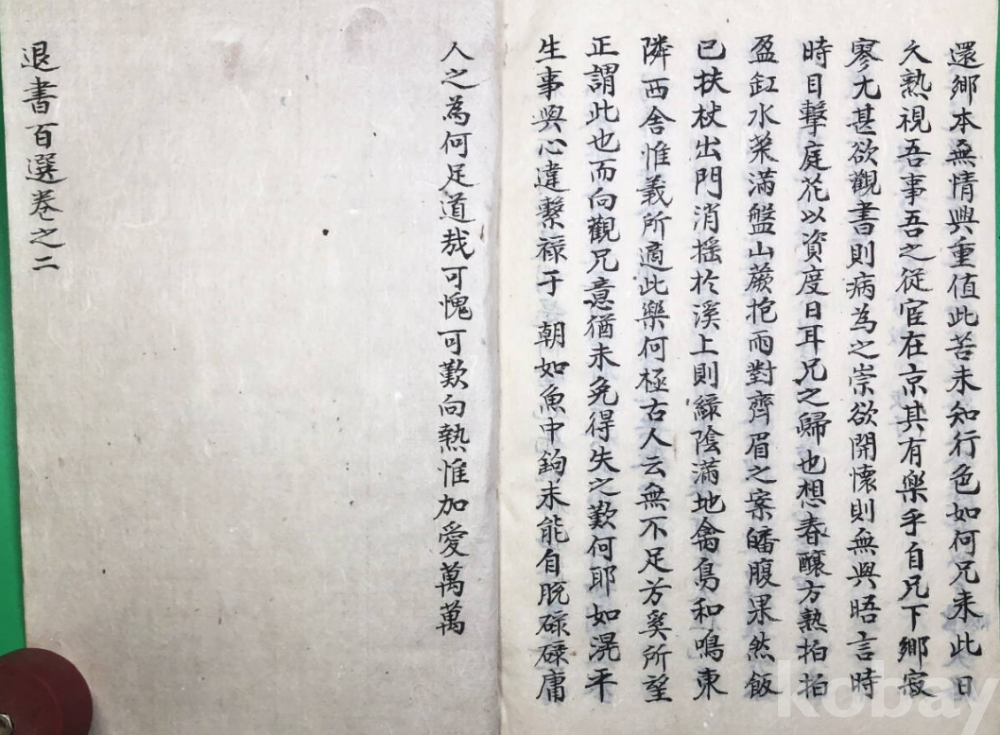 還鄉本無情興重值此苦未知行色如何兄未此日
久熟視吾事吾之從宦在京其有樂乎自兄下鄉寂
寥尤甚欲觀書則病為之祟欲開懷則無與晤言時
時目擊庭花以資度日耳兄之歸也想春釀方熟拍拍
盈缸水菜滿盤山蕨抱雨對齊眉之案皤腹果然飯
已扶杖出門消搖於溪上則綠陰滿地禽鳥和鳴東
隣西舍惟義所適此樂何極古人云無不足方奚所望
正謂此也而向觀兄意猶未免得失之歎何耶如滉平
生事與心違繫祿于 朝如魚中鉤未能自脫碌碌庸
人之為何足道哉可愧可歎向熱惟加愛萬萬
退書百選卷之二
kobay